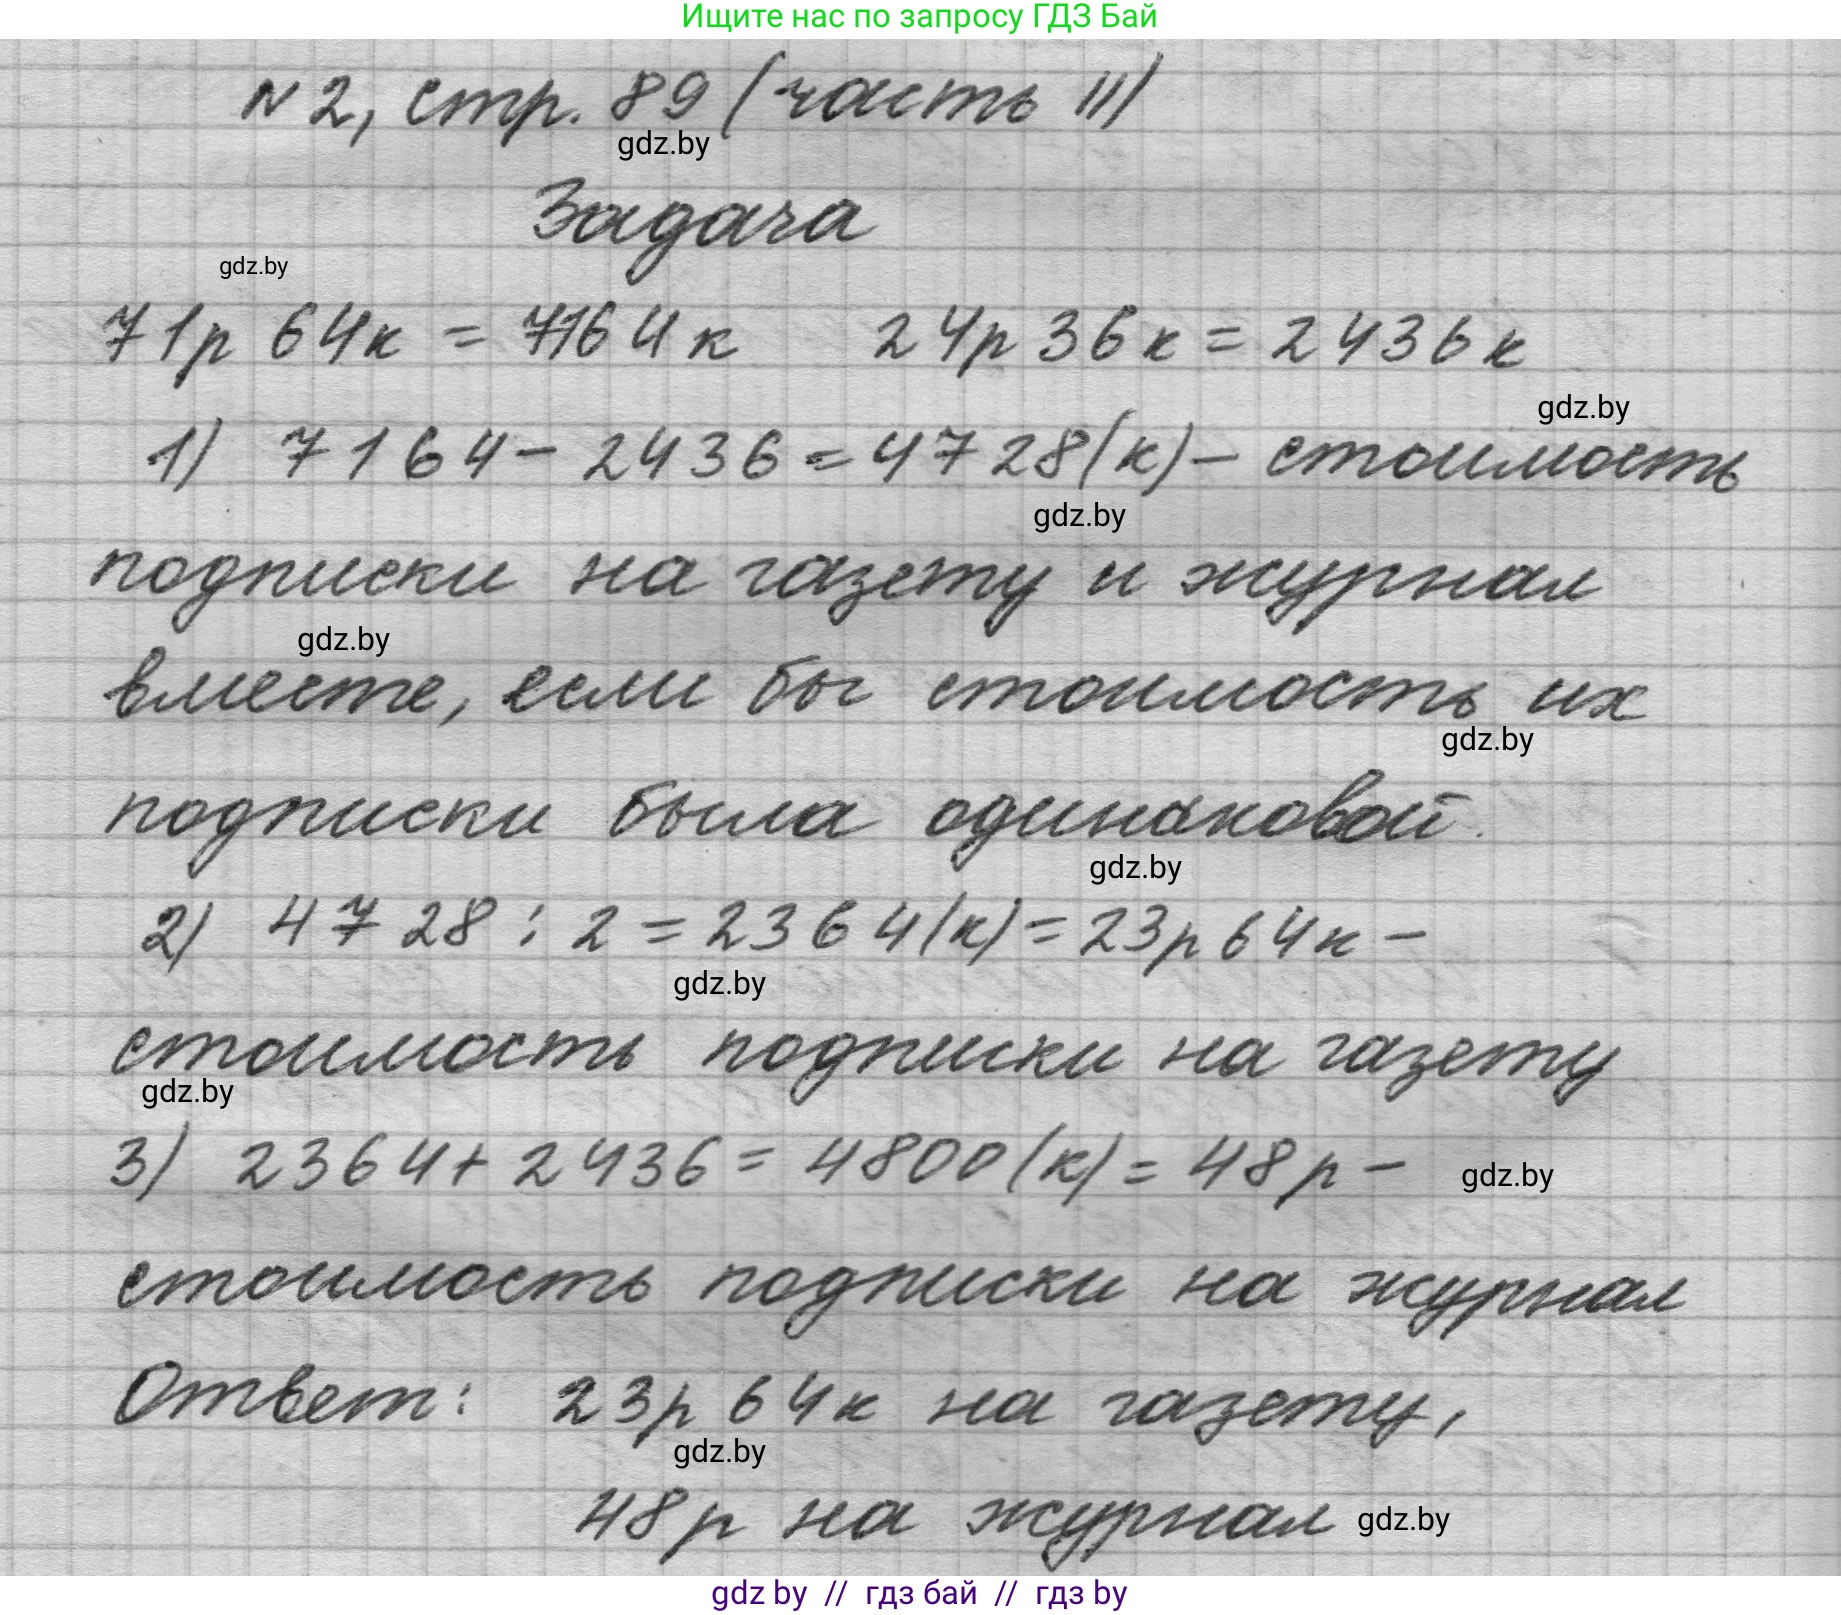 Ищите нас по запросу ГДЗ Бай
N 2, стр. 89 (часть II)
gdz.by
Задача
gdz.by
71р 64к = 7164к 24р 36к = 2436к
gdz.by
1) 7164 - 2436 = 4728(к) - стоимость
gdz.by
подписки на газету и журнал
gdz.by
вместе, если бы стоимость их
gdz.by
подписки была одинаковой.
gdz.by
2) 4728 : 2 = 2364(к) = 23р 64к -
gdz.by
стоимость подписки на газету
gdz.by
3) 2364 + 2436 = 4800(к) = 48р - gdz.by
стоимость подписки на журнал
Ответ: 23р 64к на газету,
gdz.by
48р на журнал gdz.by
gdz by // гдз бай // гдз by